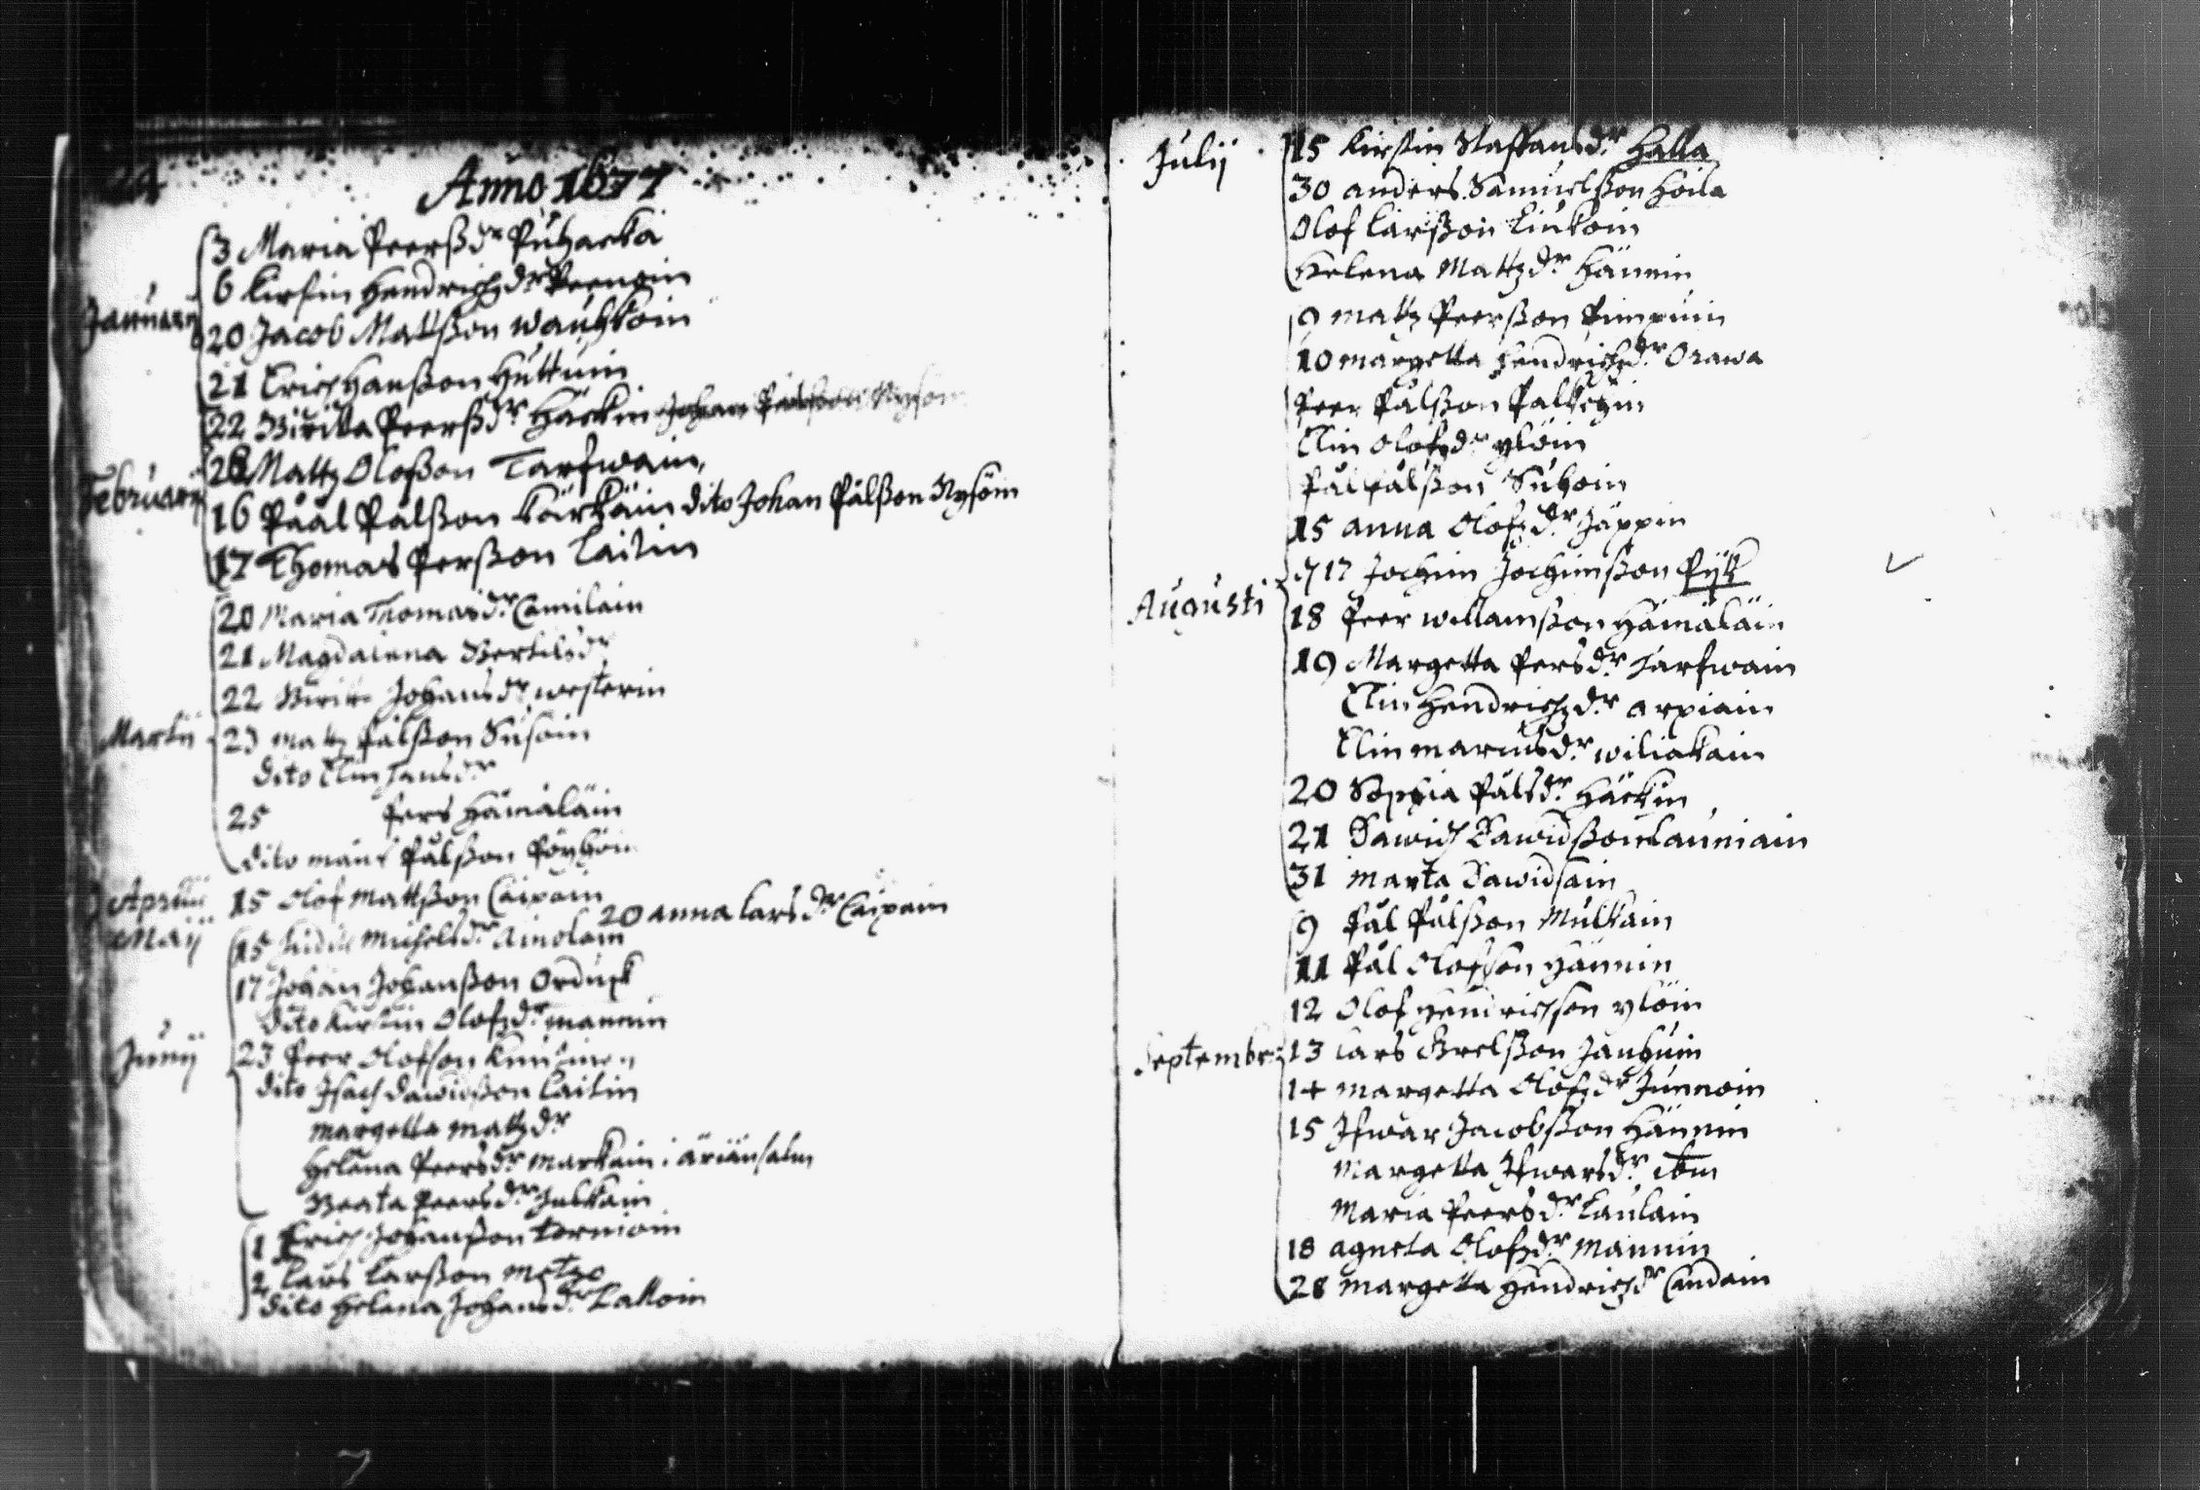 24
Anno 1677
Januarij
3 Maria Peerßdr Puhacka
6 Kirstin Hendrichzdr Peenoin
20 Jacob Matßon Wauhkoin
21 Erich Hanßon Huttuin
22 Biritta Peerßdr Häckin Johan Pålßon Nysöin
Februarij
28 Mattz Oloßon Tarfwain
16 Påål Pålßon Kärkäin dito Johan Pålßon Nysöin
17 Thomas Perßon Laitin
Martij
20 Maria Thomasdr Camilain
21 Magdalena Bertilsdr
22 Birita Johansdr Westerin
23 Matz Pålßon Susoin
dito Elin Jansdr
25 Pers Hämäläin
dito Måns Pålßon Pöyhöin
Aprilis 15 Olof Mattßon Caipain
20 Anna Larsdr Caipain
Maij
15 Michelsdr Ainolain
17 Johan Johanßon Orduck
dito Kirstin Olofzdr Mannin
Junij
23 Peer Olofson Knutinen
dito Isach Dawidßon Laitin
Margetta Matzdr
Helena Peersdr Markain i äriänsalm
Beata Peersdr Julkain
1 Erich Johanßon Torniain
2 Lars Larßon Metzo
dito Helena Johansdr Lakoin
Julij
15 Kirstin Staffansdr Halla
30 Anders Samuelßon Hoila
Olof Larßon Liukoin
Helena Mattzdr Hännin
Augusti
9 Mattz Peerßon Pimpuin
10 Margetta Hendrichzdr Orawa
Peer Pålßon Palkeýin
Elin Olofzdr Ylöin
Pål Pålßon Suhoin
15 Anna Olofzdr Jäppin
17 Jochim Jochimßon Pijk
18 Peer Willamßon Hämäläin
19 Margetta Persdr Tarfwain
Elin Hendrichzdr Arpiain
Elin Marcusdr Wiliakain
20 Sophia Pålsdr Häckin
21 Dawidh Dawidßon Launiain
31 Marta Dawidsain
September
9 Pål Pålßon Mulkain
11 Pål Olofson Hännin
12 Olof Hendrichson Ylöin
13 Lars Brelßon Jauhuin
14 Margetta Olofzdr Junnoin
15 Ifwar Jacobßon Hännin
Margetta Ifwarsdr ibm
Maria Peersdr Laulain
18 Agneta Olofzdr Mannin
28 Margetta Hendrichzdr Candain